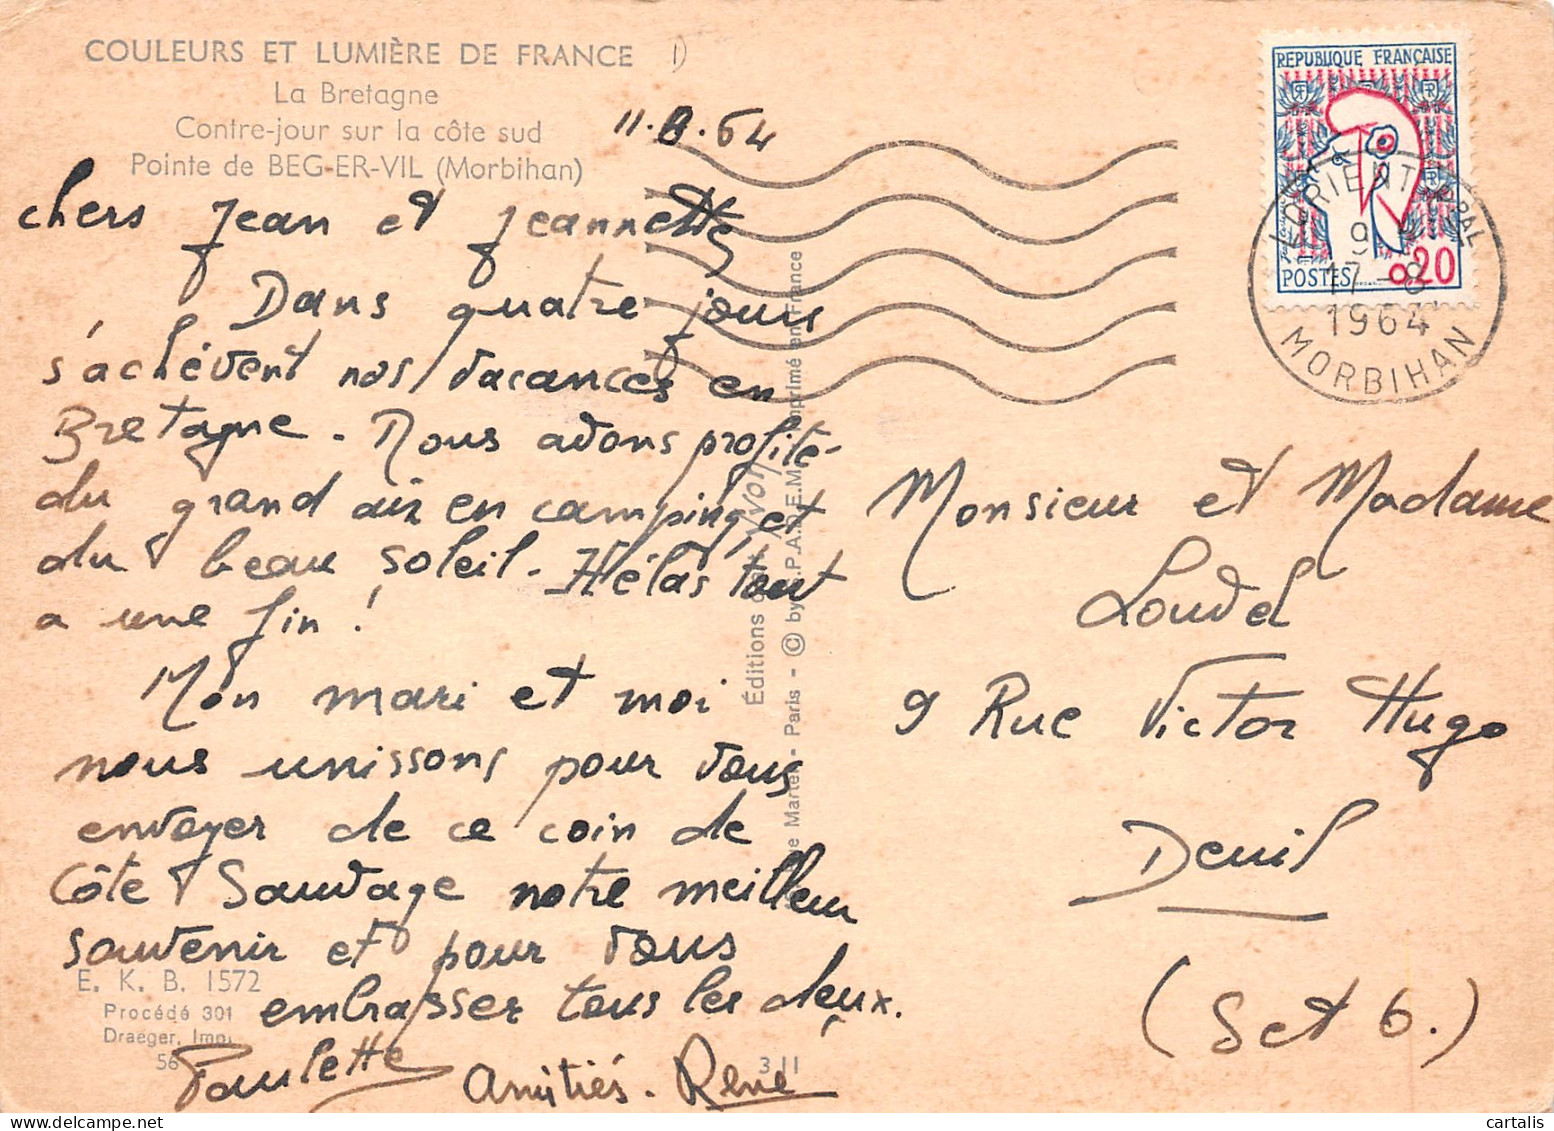 COULEURS ET LUMIÈRE DE FRANCE 1)
La Bretagne
Contre-jour sur la côte sud
Pointe de BEG-ER-VIL (Morbihan)
11.8.64
chers Jean et Jeannette
Dans quatre jours
s'achévent nos vacances en
Bretagne. Nous avons profité
du grand air en camping, et
du beau soleil. Hélas tout
a une fin !
Mon mari et moi
nous unissons pour vous
envoyer de ce coin de
Côte Sauvage notre meilleur
souvenir et pour vous
embrasser tous les deux.
Paulette
Amitiés. René
E. K. B. 1572
Procédé 301
Draeger, Imp.
56
3 11
Éditions d'Art Yvon
Paris - © by S.P.A.D.E.M. Imprimé en France
REPUBLIQUE FRANÇAISE
POSTES 0,20
LORIENT PPAL
9
17 - 8
1964
MORBIHAN
Monsieur et Madame
Loudel
9 Rue Victor Hugo
Deuil
(Set 6.)
cartalis